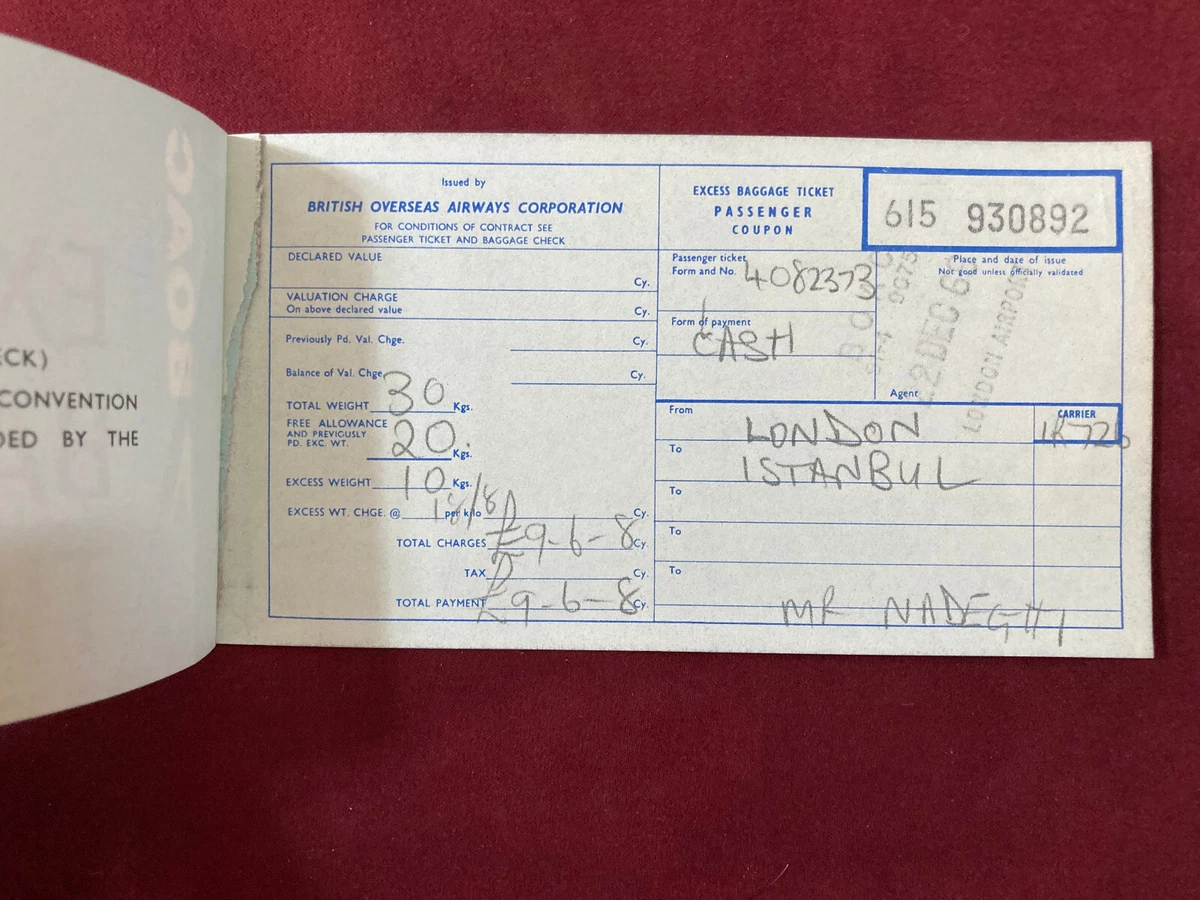 BOAC
ECK)
CONVENTION
DED BY THE
Issued by
BRITISH OVERSEAS AIRWAYS CORPORATION
FOR CONDITIONS OF CONTRACT SEE
PASSENGER TICKET AND BAGGAGE CHECK
DECLARED VALUE
Cy.
VALUATION CHARGE
On above declared value Cy.
Previously Pd. Val. Chge. Cy.
Balance of Val. Chge. Cy.
TOTAL WEIGHT 30 Kgs.
FREE ALLOWANCE
AND PREVIOUSLY
PD. EXC. WT. 20 Kgs.
EXCESS WEIGHT 10 Kgs.
EXCESS WT. CHGE. @ 18/8 per kilo Cy.
TOTAL CHARGES £9-6-8 Cy.
TAX Cy.
TOTAL PAYMENT £9-6-8 Cy.
EXCESS BAGGAGE TICKET
PASSENGER
COUPON
615 930892
Passenger ticket
Form and No. 4082373
Form of payment
CASH
Place and date of issue
Not good unless officially validated
LONDON AIRPORT
Agent
From LONDON
CARRIER
To ISTANBUL
To
To
To
MR NADEGHI